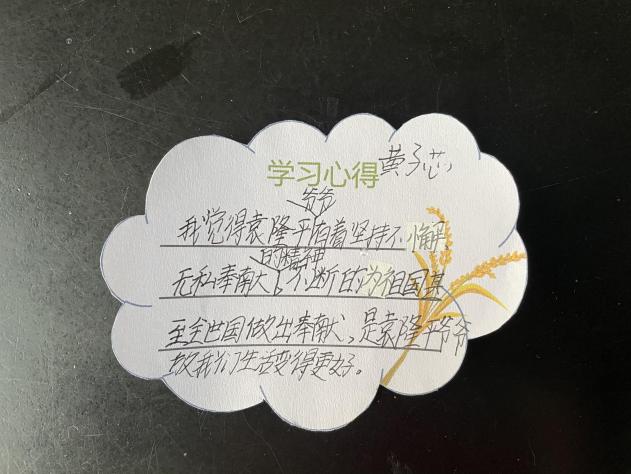 学习心得
黄子芯
爷爷
我觉得袁隆平有着坚持不懈
的精神
无私奉南大。不断的为祖国甚
至全世国做出奉献,是袁隆平爷爷
放我们生活变得更好。